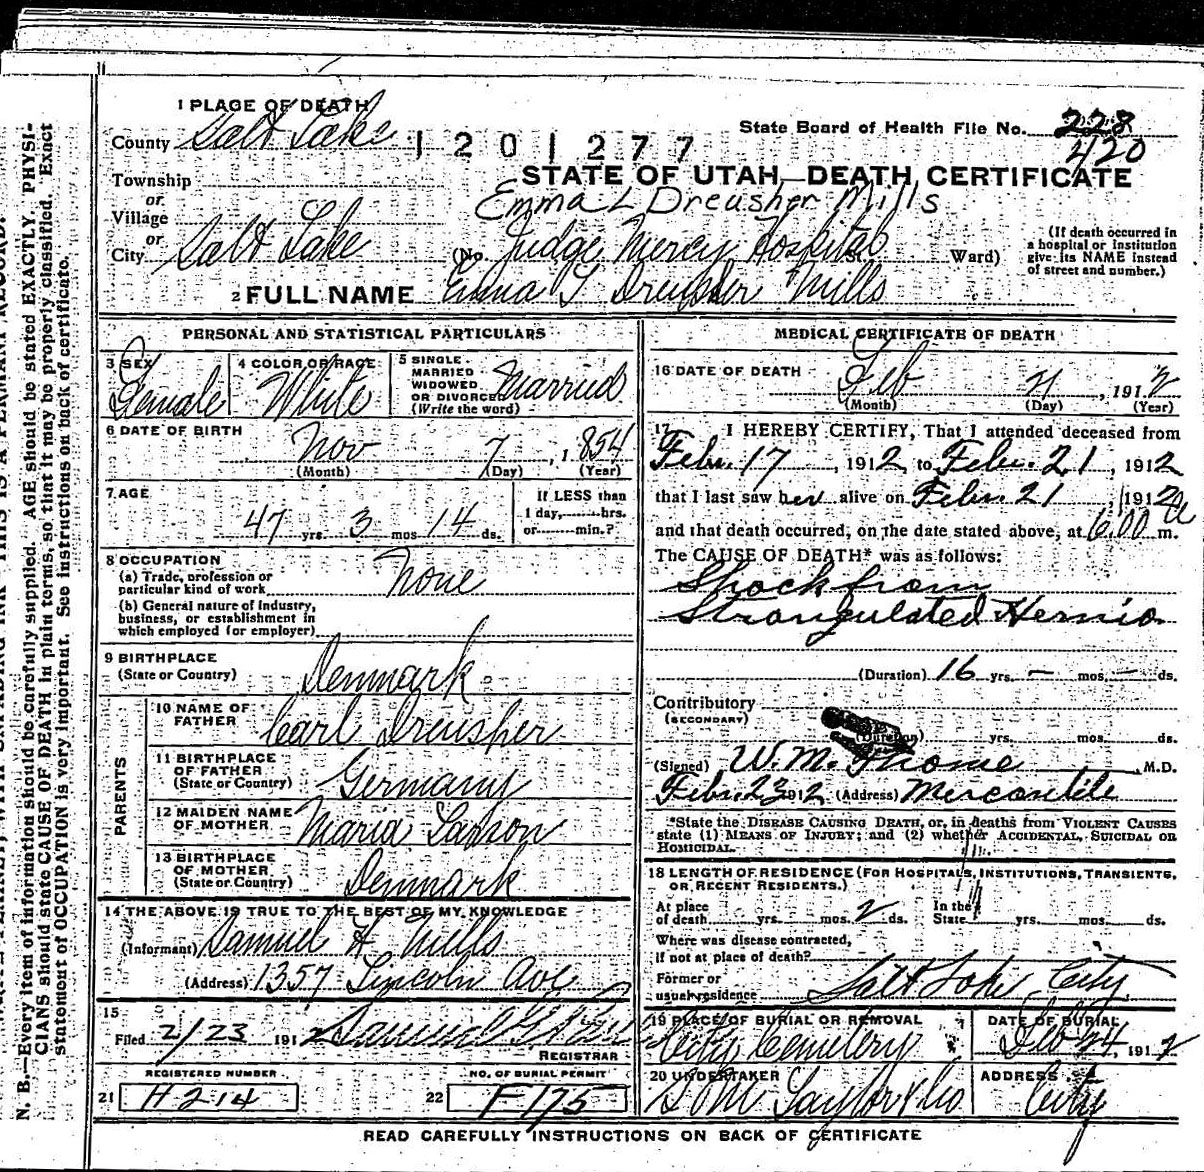 1 PLACE OF DEATH
County Salt Lake
1201277
State Board of Health File No. 228
420
Township
or
Village
or
City Salt Lake
STATE OF UTAH—DEATH CERTIFICATE
Emma L Dreusher Mills
(No. Judge Mercy Hospital St. Ward)
(If death occurred in a hospital or institution give its NAME instead of street and number.)
2 FULL NAME Emma L Dreusher Mills
PERSONAL AND STATISTICAL PARTICULARS
3 SEX Female
4 COLOR OR RACE White
5 SINGLE MARRIED WIDOWED OR DIVORCED (Write the word) Married
6 DATE OF BIRTH Nov 7, 1854
(Month) (Day) (Year)
7 AGE
47 yrs. 3 mos 14 ds.
If LESS than 1 day, hrs. or min.?
8 OCCUPATION
(a) Trade, profession or particular kind of work None
(b) General nature of industry, business, or establishment in which employed (or employer)
9 BIRTHPLACE
(State or Country) Denmark
PARENTS
10 NAME OF FATHER Carl Dreusher
11 BIRTHPLACE OF FATHER (State or Country) Germany
12 MAIDEN NAME OF MOTHER Maria Larson
13 BIRTHPLACE OF MOTHER (State or Country) Denmark
14 THE ABOVE IS TRUE TO THE BEST OF MY KNOWLEDGE
(Informant) Samuel H Mills
(Address) 1357 Lincoln Ave
15
Filed 2/23 1912 Samuel G
REGISTRAR
REGISTERED NUMBER
21 H214
NO. OF BURIAL PERMIT
22 F175
MEDICAL CERTIFICATE OF DEATH
16 DATE OF DEATH Feb 21, 1912
(Month) (Day) (Year)
17 I HEREBY CERTIFY, That I attended deceased from
Febr. 17, 1912 to Febr. 21, 1912
that I last saw her alive on Febr. 21, 1912
and that death occurred, on the date stated above, at 6.00 a m.
The CAUSE OF DEATH* was as follows:
Shock from
Strangulated Hernia
(Duration) 16 yrs. — mos. — ds.
Contributory
(SECONDARY)
(Duration) yrs. mos. ds.
(Signed) W. M. Thome, M.D.
Febr. 23 1912 (Address) Mercantile
*State the DISEASE CAUSING DEATH, or, in deaths from VIOLENT CAUSES
state (1) MEANS OF INJURY; and (2) whether ACCIDENTAL, SUICIDAL OR
HOMICIDAL.
18 LENGTH OF RESIDENCE (FOR HOSPITALS, INSTITUTIONS, TRANSIENTS, OR RECENT RESIDENTS.)
At place of death yrs. mos. 2 ds. In the State yrs. mos. ds.
Where was disease contracted, if not at place of death?
Former or usual residence Salt Lake City
19 PLACE OF BURIAL OR REMOVAL City Cemetery
DATE OF BURIAL Feb 24, 1912
20 UNDERTAKER S M Taylor & Co
ADDRESS City
READ CAREFULLY INSTRUCTIONS ON BACK OF CERTIFICATE
N. B.—Every item of information should be carefully supplied. AGE should be stated EXACTLY. PHYSI-
CIANS should state CAUSE OF DEATH in plain terms, so that it may be properly classified. Exact
statement of OCCUPATION is very important. See instructions on back of certificate.